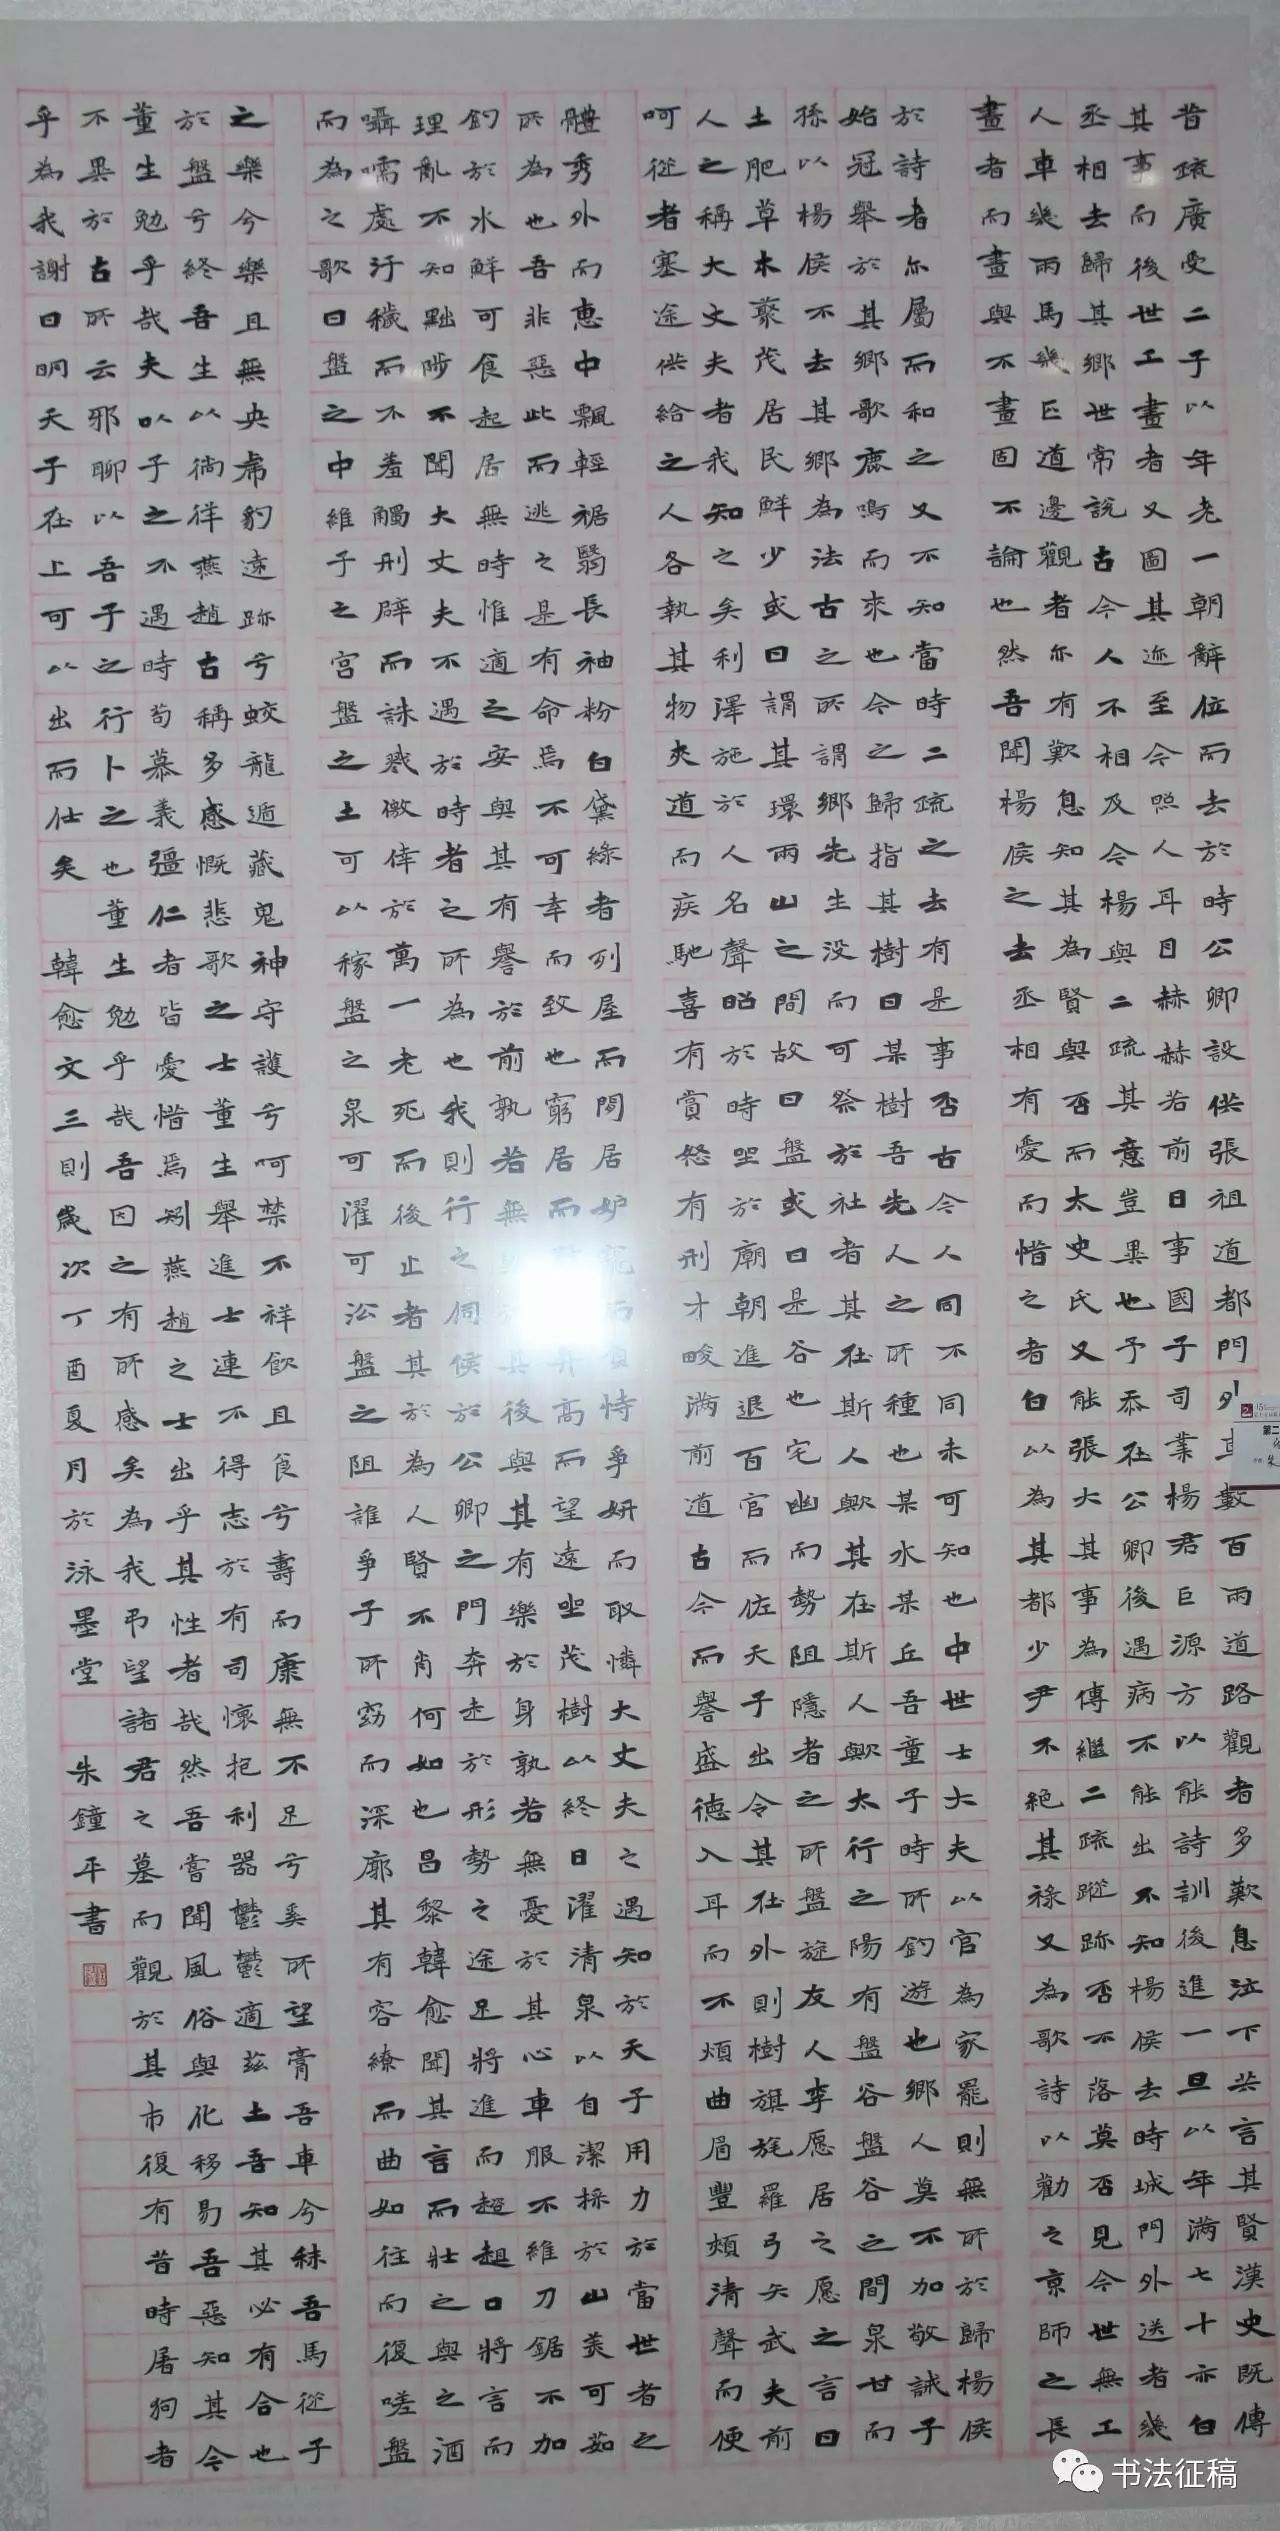 昔疏廣受二子以年老一朝辭位而去於時公卿設供張祖道都門外車數百兩道路觀者多歎息泣下共言其賢漢史既傳
其事而後世工畫者又圖其迹至今照人耳目赫赫若前日事國子司業楊君巨源方以能詩訓後進一旦以年滿七十亦白
丞相去歸其鄉世常說古今人不相及今楊與二疏其意豈異也予忝在公卿後遇病不能出不知楊侯去時城門外送者幾
人車幾兩馬幾匹道邊觀者亦有歎息知其為賢與否而太史氏又能張大其事為傳繼二疏蹤跡否不落莫否見今世無工
畫者而畫與不畫固不論也然吾聞楊侯之去丞相有愛而惜之者白以為其都少尹不絕其祿又為歌詩以勸之京師之長
於詩者亦屬而和之又不知當時二疏之去有是事否古今人同不同未可知也中世士大夫以官為家罷則無所於歸楊侯
始冠舉於其鄉歌鹿鳴而來也今之歸指其樹曰某樹吾先人之所種也某水某丘吾童子時所釣遊也鄉人莫不加敬誡子
孫以楊侯不去其鄉為法古之所謂鄉先生没而可祭於社者其在斯人歟其在斯人歟太行之陽有盤谷盤谷之間泉甘而
土肥草木藂茂居民鮮少或曰謂其環兩山之間故曰盤或曰是谷也宅幽而勢阻隱者之所盤旋友人李愿居之愿之言曰
人之稱大丈夫者我知之矣利澤施於人名聲昭於時坐於廟朝進退百官而佐天子出令其在外則樹旗旄羅弓矢武夫前
呵從者塞途供給之人各執其物夾道而疾馳喜有賞怒有刑才畯滿前道古今而譽盛德入耳而不煩曲眉豐頰清聲而便
體秀外而惠中飄輕裾翳長袖粉白黛綠者列屋而閒居妒寵而負恃爭妍而取憐大丈夫之遇知於天子用力於當世者之
所為也吾非惡此而逃之是有命焉不可幸而致也窮居而升高而望遠坐茂樹以終日濯清泉以自潔採於山美可茹
釣於水鮮可食起居無時惟適之安與其有譽於前孰若無其後與其有樂於身孰若無憂於其心車服不維刀鋸不加
理亂不知黜陟不聞大丈夫不遇於時者之所為也我則行之伺候於公卿之門奔走於形勢之途足將進而趑趄口將言而
囁嚅處汙穢而不羞觸刑辟而誅戮僥倖於萬一老死而後止者其於為人賢不肖何如也昌黎韓愈聞其言而壯之與之酒
而為之歌曰盤之中維子之宮盤之土可以稼盤之泉可濯可沿盤之阻誰爭子所窈而深廓其有容繚而曲如往而復嗟盤
之樂兮樂且無央虎豹遠跡兮蛟龍遁藏鬼神守護兮呵禁不祥飲且食兮壽而康無不足兮奚所望膏吾車兮秣吾馬從子
於盤兮終吾生以徜徉燕趙古稱多感慨悲歌之士董生舉進士連不得志於有司懷抱利器鬱鬱適茲土吾知其必有合也
董生勉乎哉夫以子之不遇時苟慕義彊仁者皆愛惜焉矧燕趙之士出乎其性者哉然吾嘗聞風俗與化移易吾惡知其今
不異於古所云邪聊以吾子之行卜之也董生勉乎哉吾因之有所感矣為我弔望諸君之墓而觀於其市復有昔時屠狗者
乎為我謝曰明天子在上可以出而仕矣 韓愈文三則歲次丁酉夏月於泳墨堂 朱鐘平書
书法征稿